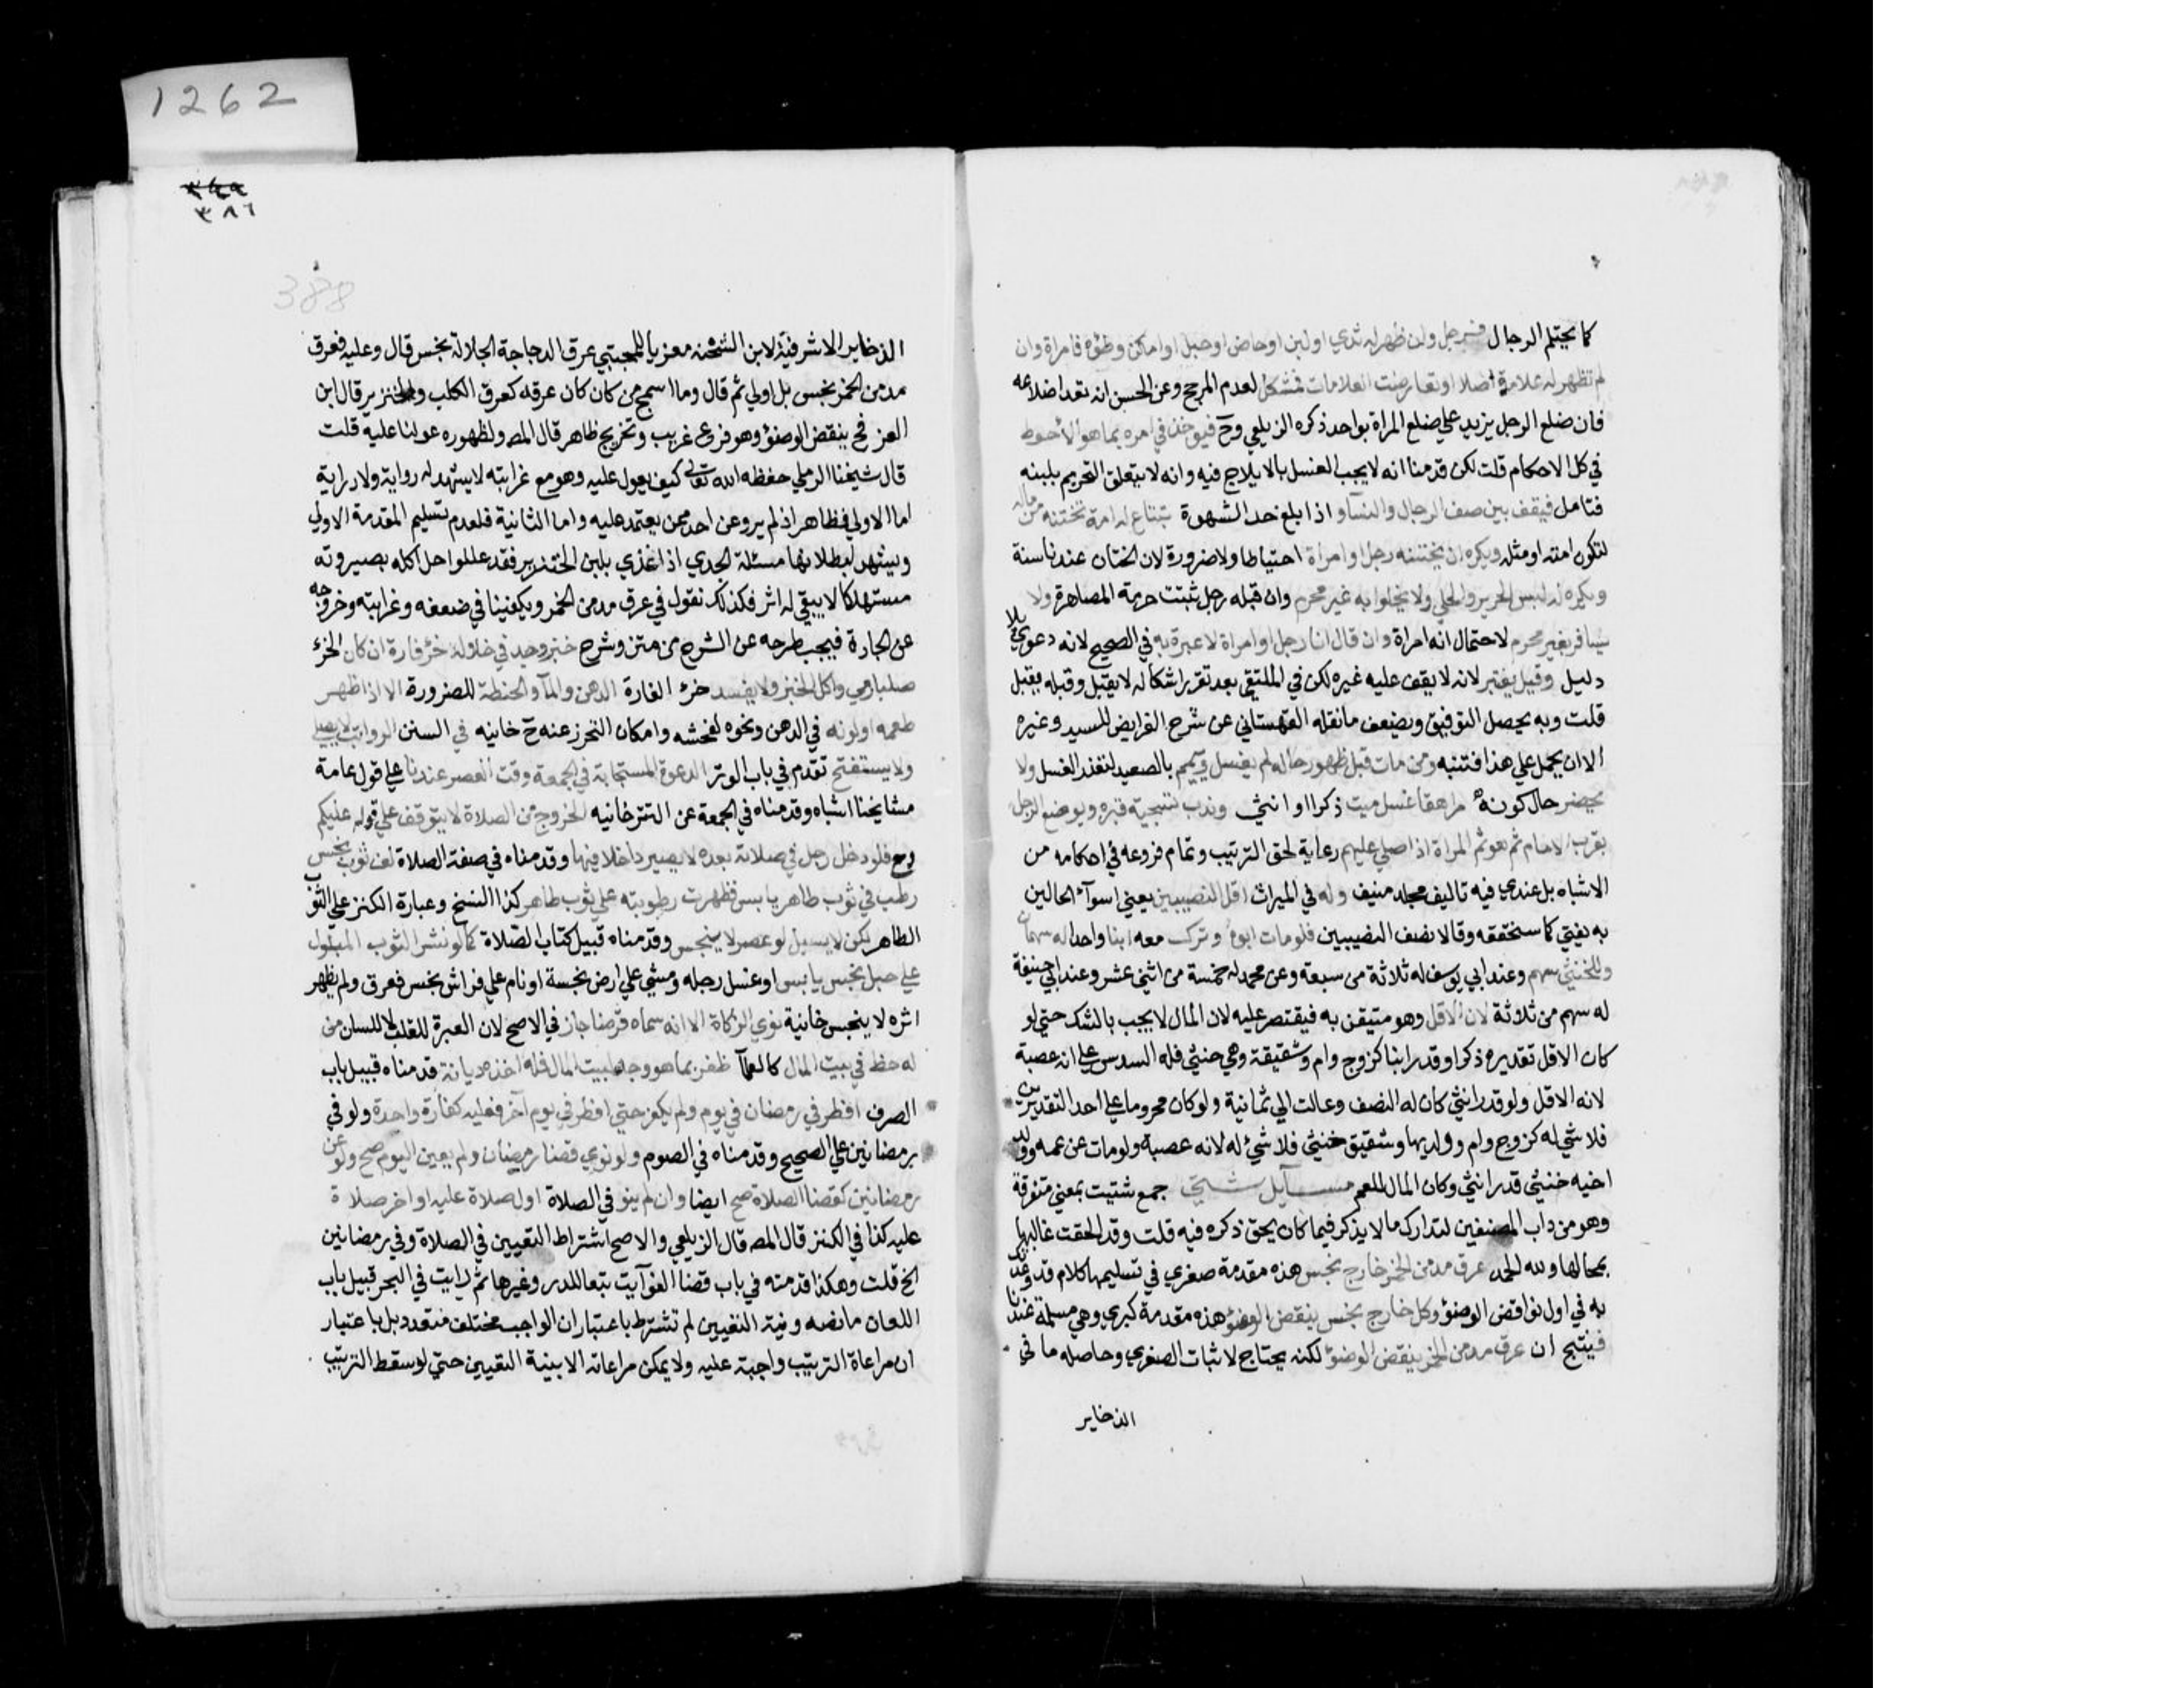 كما يحتلم الرجال فرجل وان ظهر له ثدي او لبن او حاض او حبل او امكن وطؤه فامراة وان
لم تظهر له علامة اصلا او تعارضت العلامات فمشكل لعدم المرجح وعن الحسن انه تعد اضلاعه
فان ضلع الرجل يزيد على ضلع المراة بواحد ذكره الزيلعي وح فيوخذ في امره بما هو الاحوط
في كل الاحكام قلت لكن قدمنا انه لا يجب الغسل بالايلاج فيه وانه لا يتعلق التحريم بلبنه
فتامل فيقف بين صف الرجال والنسآ و اذا بلغ حد الشهوة تبتاع له امة تختنه من ماله
لتكون امته او مثله ويكره ان يختنه رجل او امراة احتياطا ولا ضرورة لان الختان عندنا سنة
ويكره له لبس الحرير والحلي ولا يخلو به غير محرم وان قبله رجل ثبتت حرمة المصاهرة ولا
يسافر بغير محرم لاحتمال انه امراة وان قال انا رجل او امراة لا عبرة به في الصحيح لانه دعوى بلا
دليل وقيل يعتبر لانه لا يقف عليه غيره لكن في الملتقى بعد تقرر اشكاله لا يقبل وقبله يقبل
قلت وبه يحصل التوفيق ويضعف ما نقله القهستاني عن شرح الفرايض للسيد وغيره
الا ان يحمل على هذا فتنبه ومن مات قبل ظهور حاله لم يغسل ويمم بالصعيد لتعذر الغسل ولا
يحضر حال كونه مراهقا غسل ميت ذكرا او انثى وندب تسجية قبره ويوضع الرجل
بقرب الامام ثم هو ثم المراة اذا صلي عليهم رعاية لحق الترتيب وتمام فروعه في احكامه من
الاشباه بل عندي فيه تاليف مجلد منيف وله في الميراث اقل النصيبين يعني اسوآ الحالين
به يفتى كما سنحققه وقالا نصف النصيبين فلو مات ابوه وترك معه ابنا واحدا له سهمان
وللخنثى سهم وعند ابي يوسف له ثلاثة من سبعة وعن محمد له خمسة من اثني عشر وعند ابي حنيفة
له سهم من ثلاثة لان الاقل وهو متيقن به فيقتصر عليه لان المال لا يجب بالشك حتى لو
كان الاقل تقديره ذكرا وقدر ابنا كزوج وام وشقيقة وهي خنثى فله السدس على انه عصبة
لانه الاقل ولو قدر انثى كان له النصف وعالت الى ثمانية ولو كان محروما على احد التقديرين
فلا شي له كزوج وام وولديها وشقيق خنثى فلا شي له لانه عصبة ولو مات عن عمه وولد
اخيه خنثى قدر انثى وكان المال للعم مسآيل شتى جمع شتيت بمعنى متفرقة
وهو من داب المصنفين لتدارك ما لا يذكر فيما كان يحق ذكره فيه قلت وقد الحقت غالبها
بمحالها ولله الحمد عرق مدمن الخمر خارج نجس هذه مقدمة صغرى في تسليمها كلام قد وعد
به في اول نواقض الوضؤ وكل خارج نجس ينقض الوضؤ هذه مقدمة كبرى وهي مسلمة عندنا
فينتج ان عرق مدمن الخمر ينقض الوضوٓ لكنه يحتاج لاثبات الصغرى وحاصله ما في
الذخاير
1262
٣٨٦
388
الذخاير الاشرفية لابن الشحنه معزيا للمجتبى عرق الدجاجة الجلالة نجس قال وعليه فعرق
مدمن الخمر نجس بل اولى ثم قال وما اسمج من كان كان عرقه كعرق الكلب والخنزير قال ابن
العز فح ينقض الوضؤ وهو فروع غريب وتخريج ظاهر قال المصـ ولظهوره عولنا عليه قلت
قال شيخنا الرملي حفظه الله تعالى كيف يعول عليه وهو مع غرابته لا يشهد له رواية ولا دراية
اما الاولى فظاهر اذ لم يرو عن احد ممن يعتمد عليه واما الثانية فلعدم تسليم المقدمة الاولى
ويشهد لبطلانها مسئلة الجدي اذا غذي بلبن الخنزير فقد عللوا حل اكله بصيرورته
مستهلكا لا يبقى له اثر فكذلك نقول في عرق مدمن الخمر ويكفينا في ضعفه وغرابته وخروجه
عن الجادة فيجب طرحه عن الشرح من متن وشرح خبز وجد في خلاله خرؤ فارة ان كان الخرء
صلبا رمي واكل الخبز ولا يفسد خرؤ الفارة الدهن والمآ والحنطة للضرورة الا اذا ظهر
طعمه او لونه في الدهن ونحوه لفحشه وامكان التحرز عنه ح خانيه في السنن الرواتب لا يصلي
ولا يستفتح تقدم في باب الوتر الدعوة المستجابة في الجمعة وقت العصر عندنا على قول عامة
مشايخنا اشباه وقدمناه في الجمعة عن التترخانيه الخروج من الصلاة لا يتوقف على قوله عليكم
وح فلو دخل رجل في صلاته بعده لا يصير داخلا فيها وقدمناه في صفة الصلاة لف ثوب نجس
رطب في ثوب طاهر يابس فظهرت رطوبته على ثوب طاهر كذا النسخ وعبارة الكنز على الثوب
الطاهر لكن لا يسيل لو عصر لا ينجس وقدمناه قبيل كتاب الصلاة كما لو نشر الثوب المبلول
على حبل نجس يابس او غسل رجله ومشى على ارض نجسة او نام على فراش نجس فعرق ولم يظهر
اثره لا ينجس خانية نوى الزكاة الا انه سماه قرضا جاز في الاصح لان العبرة للقلب لا للسان من
له حظ في بيت المال كالعلمآ ظفر بما هو وجه لبيت المال فله اخذه ديانة قدمناه قبيل باب
الصرف افطر في رمضان في يوم ولم يكفر حتى افطر في يوم آخر فعليه كفارة واحدة ولو في
رمضانين على الصحيح وقدمناه في الصوم ولو نوى قضا رمضان ولم يعين اليوم صح ولو عن
رمضانين كقضا الصلاة صح ايضا وان لم ينو في الصلاة اول صلاة عليه او اخر صلاة
عليه كذا في الكنز قال المصـ قال الزيلعي والاصح اشتراط التعيين في الصلاة وفي رمضانين
الخ قلت وهكذا قدمته في باب قضا الفوآيت تبعا للدرر وغيرها ثم رايت في البحر قبيل باب
اللعان ما نصه ونية التعيين لم تشترط باعتبار ان الواجب مختلف متعدد بل باعتبار
ان مراعاة الترتيب واجبة عليه ولا يمكن مراعاته الا بنية التعيين حتى لو سقط الترتيب